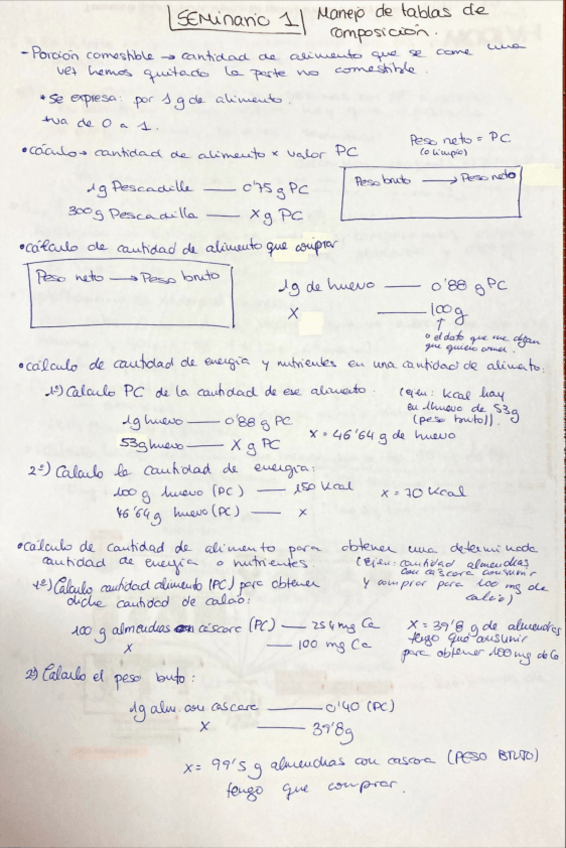 SEMinario 1 Manejo de tablas de
composición.
- Porción comestible → cantidad de alimento que se come una
vez hemos quitado la parte no comestible.
• Se expresa: por 1 g de alimento.
• va de 0 a 1.
• cálculo → cantidad de alimento × valor PC
Peso neto = PC
(o limpio)
1g Pescadilla — 0'75 g PC
300g Pescadilla — X g PC
Peso bruto → Peso neto
• cálculo de cantidad de alimento que comprar
Peso neto → Peso bruto
1g de huevo — 0'88 g PC
X — 100g
↑
o el dato que me digan
que quiero comer.
• cálculo de cantidad de energía y nutrientes en una cantidad de alimento:
1º) Calculo PC de la cantidad de ese alimento.
(ejem: Kcal hay
en 1huevo de 53g
(peso bruto)).
1g huevo — 0'88 g PC
53g huevo — X g PC
X = 46'64 g de huevo
2º) Calculo la cantidad de energía:
100 g huevo (PC) — 150 Kcal
46'64 g huevo (PC) — x
x = 70 Kcal
• cálculo de cantidad de alimento para obtener una determinada
cantidad de energía o nutrientes.
(ejem: cantidad almendras
con cáscara consumir
y comprar para 100 mg de
calcio)
1º) Calculo cantidad alimento (PC) para obtener
dicha cantidad de calcio:
100 g almendras cáscara (PC) — 254 mg Ca
x — 100 mg Ca
X = 39'8 g de almendras
tengo que consumir
para obtener 100 mg de Ca
2º) Calculo el peso bruto:
1g alm. con cascara — 0'40 (PC)
x — 39'8g
x = 99'5 g almendras con cascara (PESO BRUTO)
tengo que comprar.